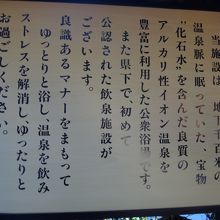 当施設は
温泉脈に眠っていた、宝物
"化石水"を含んだ良質の
アルカリ性イオン温泉を
豊富に利用した公衆浴場です。
また県下で、初めて
公認された飲泉施設が
ございます。
良識あるマナーをまもって
ゆっとりと浴し、温泉を飲み
ストレスを解消し、ゆったりと
お過ごしください。